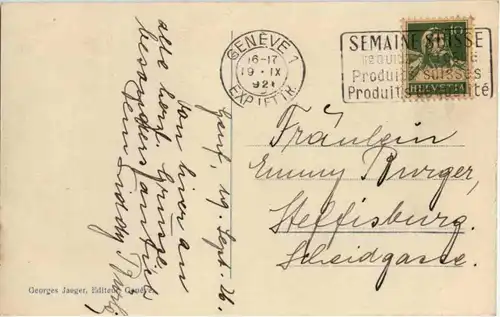 GENÈVE 1
16-17
19·IX
EXP. LETTR.
SEMAINE SUISSE
Produits suisses
Produits
HELVETIA
Genf, 19. Sept. 26.
Von hier an
alle herzl. Grüsse
besonders an Dich
Fräulein
Emmy Burger,
Steffisburg.
Scheidgasse.
Georges Jaeger, Editeur, Genève.